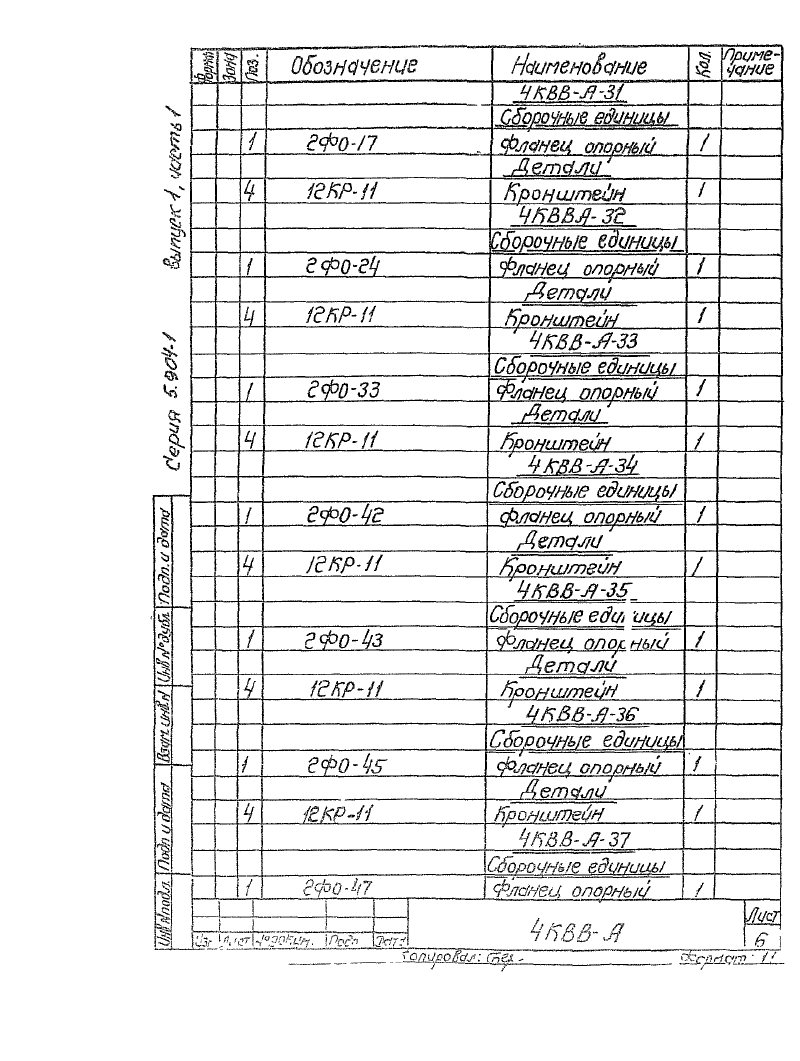 Формат Зона Поз. Обозначение Наименование Кол. Приме-чание
4КВВ-А-31
Сборочные единицы
1 2ФО-17 Фланец опорный 1
Детали
4 12КР-11 Кронштейн 1
4КВВА-32
Сборочные единицы
1 2ФО-24 Фланец опорный 1
Детали
4 12КР-11 Кронштейн 1
4КВВ-А-33
Сборочные единицы
1 2ФО-33 Фланец опорный 1
Детали
4 12КР-11 Кронштейн 1
4КВВ-А-34
Сборочные единицы
1 2ФО-42 Фланец опорный 1
Детали
4 12КР-11 Кронштейн 1
4КВВ-А-35
Сборочные единицы
1 2ФО-43 Фланец опорный 1
Детали
4 12КР-11 Кронштейн 1
4КВВ-А-36
Сборочные единицы
1 2ФО-45 Фланец опорный 1
Детали
4 12КР-11 Кронштейн 1
4КВВ-А-37
Сборочные единицы
1 2ФО-47 Фланец опорный 1
Серия 5.904-1 Выпуск 1, часть 1
Подп. и дата
Инв.№дубл.
Взам.инв.№
Подп. и дата
Инв.№подл.
Изм Лист №докум. Подп. Дата
4КВВ-А
Лист
6
Копировал:
Формат: 11